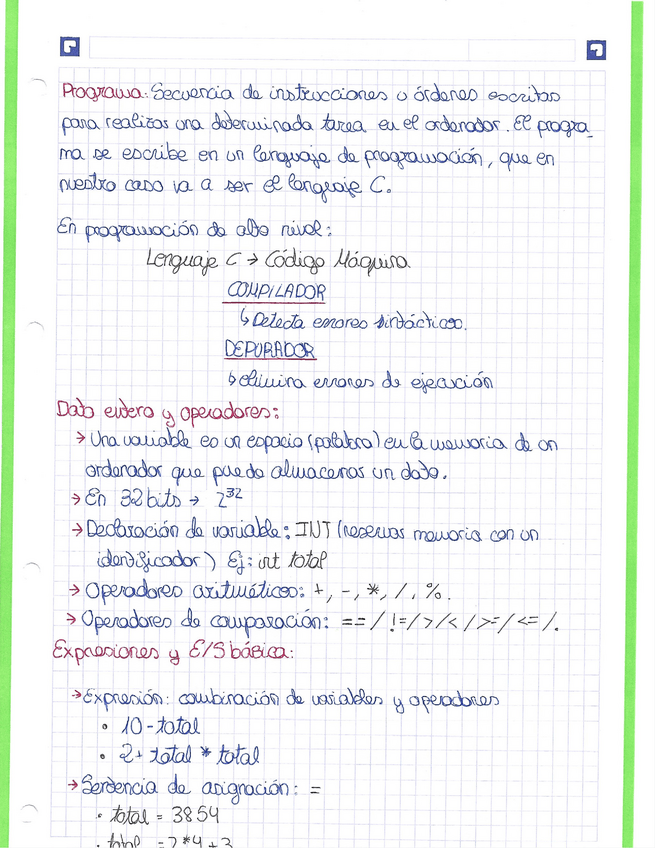 Programa: Secuencia de instrucciones u órdenes escritas
para realizar una determinada tarea en el ordenador. El progra_
ma se escribe en un lenguaje de programación, que en
nuestro caso va a ser el lenguaje C.
En programación de alto nivel:
Lenguaje C → Código Máquina
COMPILADOR
↳ Detecta errores sintácticos.
DEPURADOR
↳ elimina errores de ejecución
Dato entero y operadores:
→ Una variable es un espacio (palabra) en la memoria de un
ordenador que puede almacenar un dato.
→ En 32 bits → 2³²
→ Declaración de variable: INT (reservas memoria con un
identificador) Ej: int total
→ Operadores aritméticos: +, -, *, /, %.
→ Operadores de comparación: == / != / > / < / >= / <= /.
Expresiones y E/S básica:
→ Expresión: combinación de variables y operadores
• 10 - total
• 2 + total * total
→ Sentencia de asignación: =
• total = 3854
• total = 2*4+3